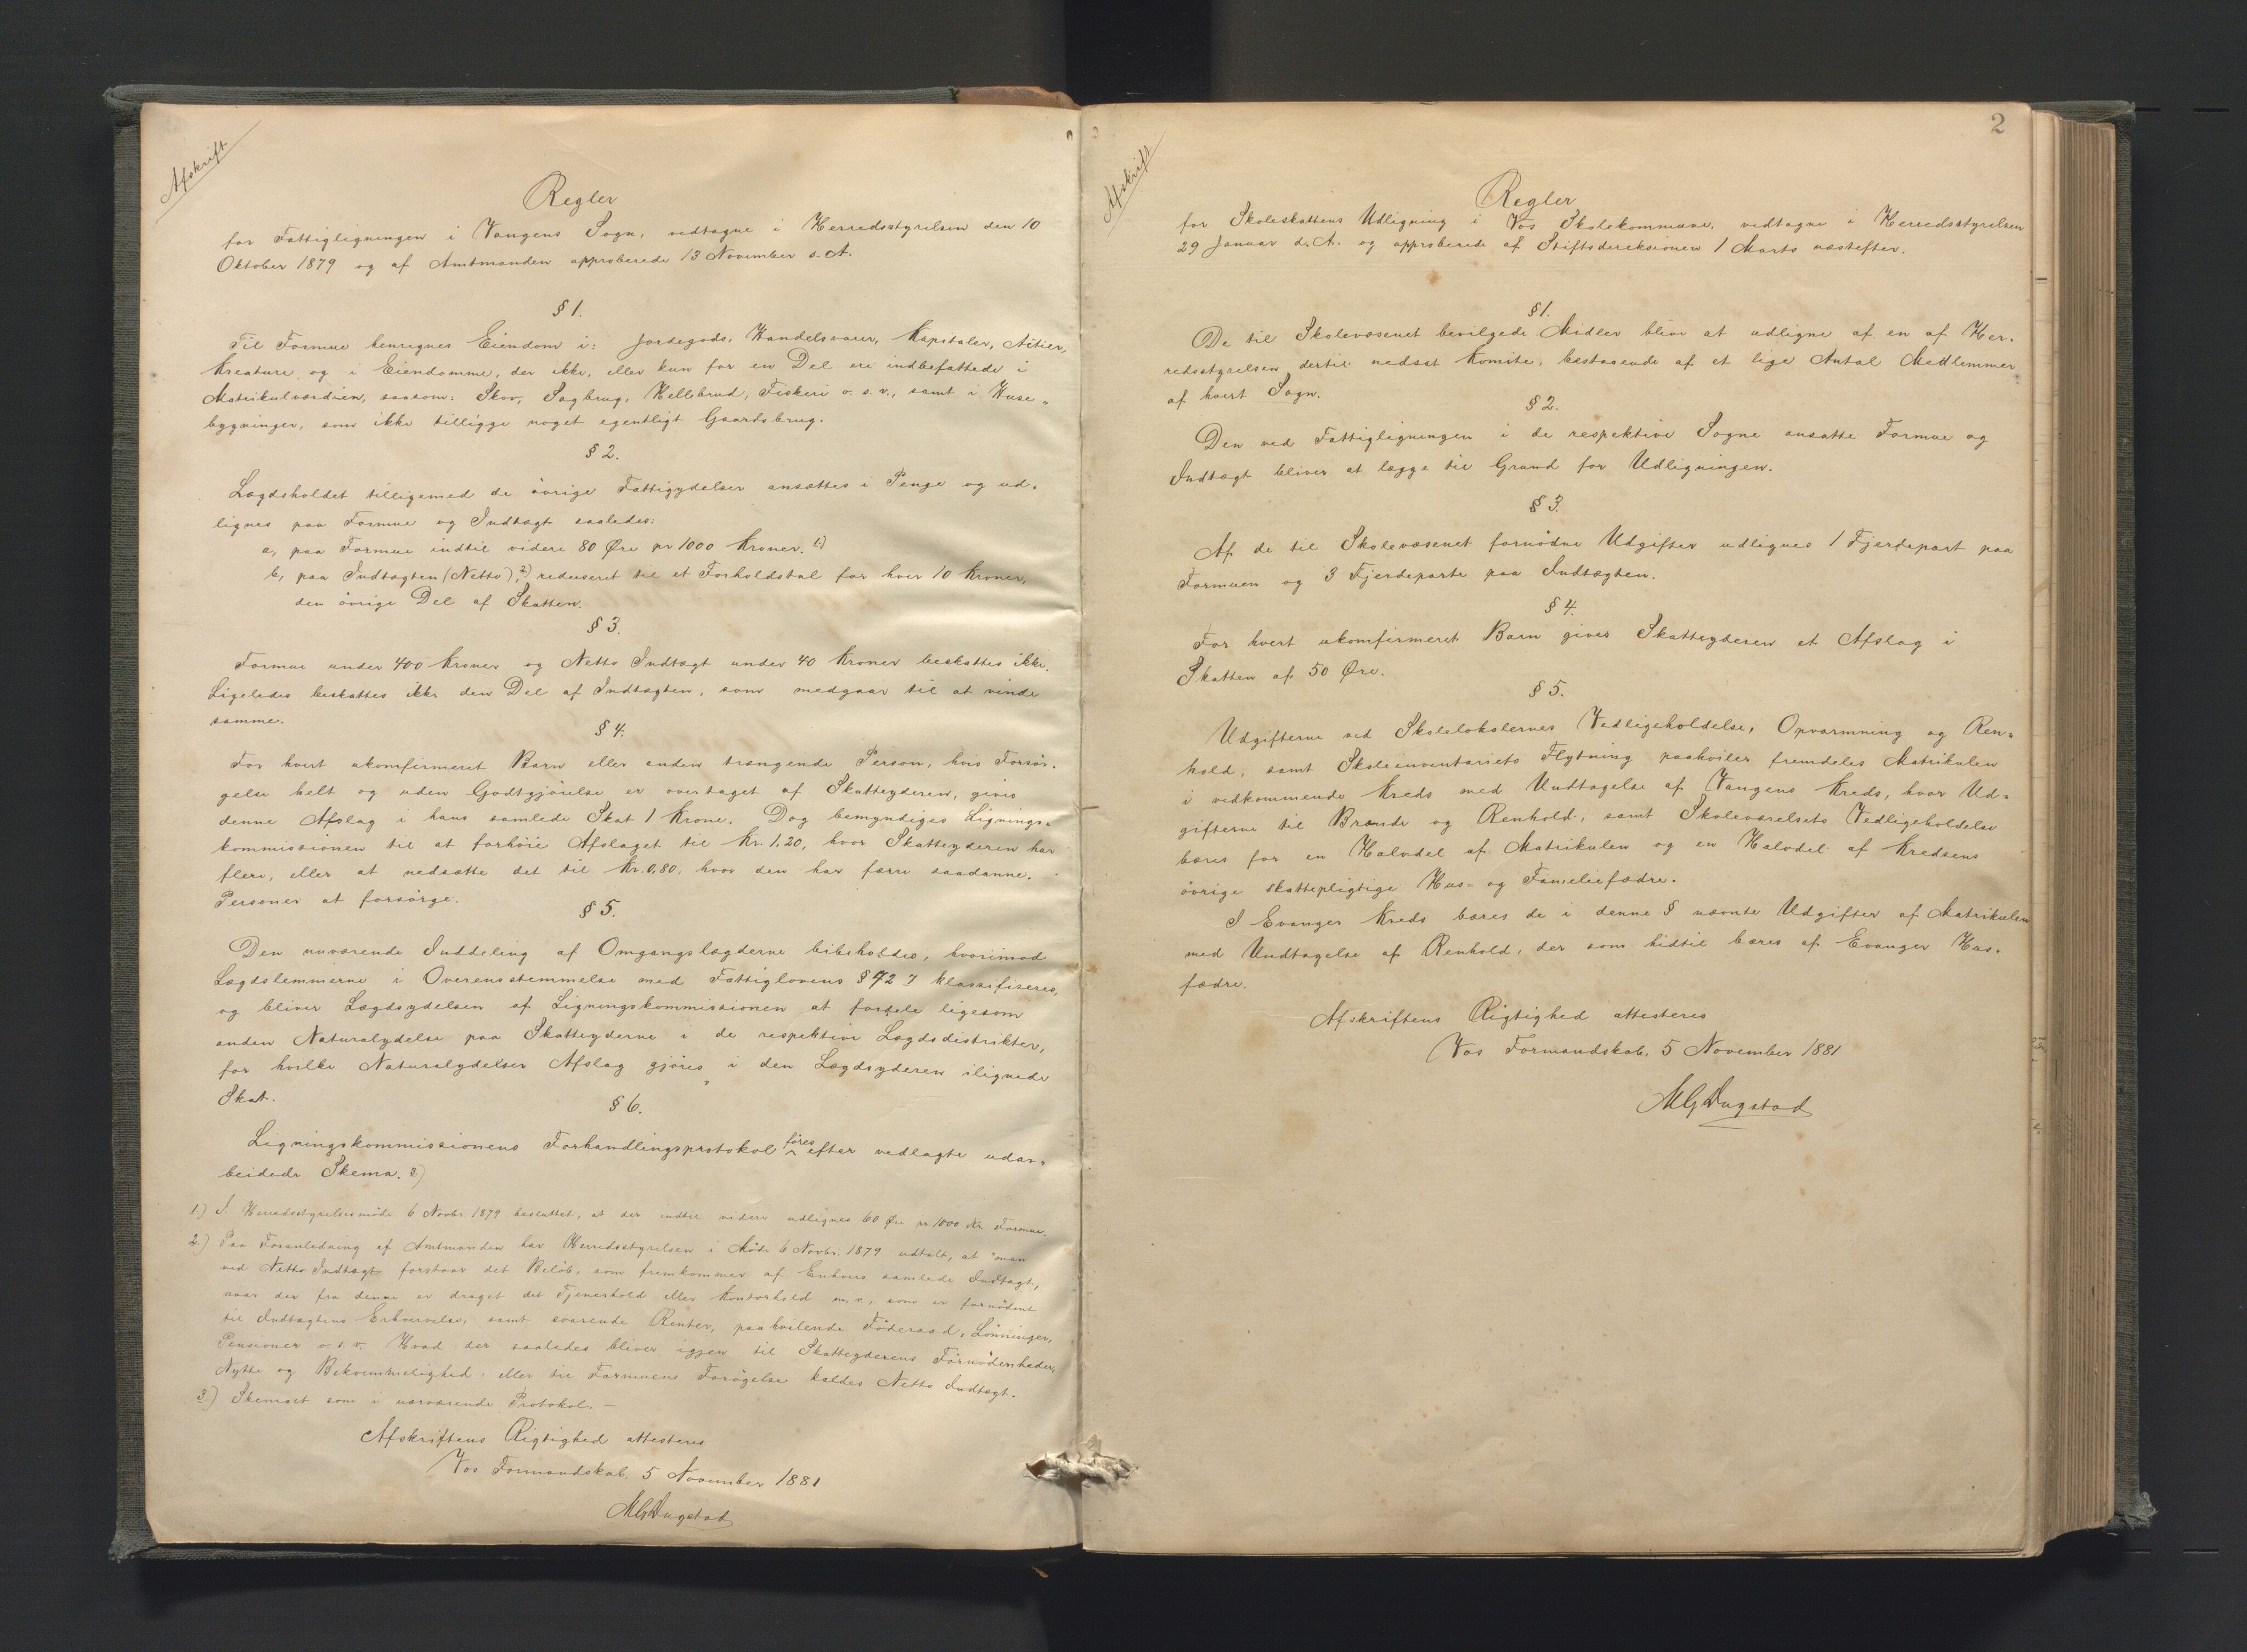 Afskrift
Regler
for Fattigligningen i Vangens Sogn, vedtagne i Herredsstyrelsen den 10
Oktober 1879 og af Amtmanden approberede 13 November s. A.
§ 1.
Til Formue henregnes Eiendom i: Jordegods, Handelsvarer, Kapitaler, Aktier,
Kreature, og i Eiendomme, der ikke, eller kun for en Del ere indbefattede i
Matrikulværdien, saasom: Skov, Sagbrug, Hellebrud, Fiskeri o. s. v., samt i Huse-
bygninger, som ikke tilligge noget egentligt Gaardsbrug.
§ 2.
Lægdsholdet tilligemed de övrige Fattigydelser ansættes i Penge og ud-
lignes paa Formue og Indtægt saaledes:
a, paa Formue indtil videre 80 Øre pr 1000 Kroner. 1)
b, paa Indtægten (Netto), 2) reduseret til et Forholdstal for hver 10 Kroner,
den övrige Del af Skatten.
§ 3.
Formue under 400 Kroner og Netto Indtægt under 40 Kroner beskattes ikke.
Ligeledes beskattes ikke den Del af Indtægten, som medgaar til at vinde
samme.
§ 4.
For hvert ukomfirmeret Barn eller anden trængende Person, hvis Forsör-
gelse helt og uden Godtgjörelse er overtaget af Skatteyderen, gives
denne Afslag i hans samlede Skat 1 Krone. Dog bemyndiges Lignings-
kommissionen til at forhöie Afslaget til Kr. 1,20, hvor Skatteyderen har
flere, eller at nedsætte det til Kr. 0,80, hvor den har færre saadanne
Personer at forsörge.
§ 5.
Den nuværende Inddeling af Omgangslægderne bibeholdes, hvorimod
Lægdslemmerne i Overensstemmelse med Fattiglovens § 42 klassifiseres,
og bliver Lægdsydelsen af Ligningskommissionen at fordele ligesom
anden Naturalydelse paa Skatteyderne i de respektive Lægdsdistrikter,
for hvilke Naturalydelser Afslag gjöres i den Lægdsyderen ilignede
Skat.
§ 6.
Ligningskommissionens Forhandlingsprotokol föres efter vedlagte udar-
beidede Skema. 3)
1) I Herredsstyrelsesmöde 6 Novbr. 1879 besluttet, at der indtil videre udlignes 60 Øre pr. 1000 Kr. Formue.
2.) Paa Foranledning af Amtmanden har Herredsstyrelsen i Möde 6 Novbr. 1879 udtalt, at "man
ved Netto Indtægt forstaar det Belöb, som fremkommer af Enhvers samlede Indtægt,
naar der fra denne er draget det Tjenerhold eller Kontorhold m. v., som er fornödent
til Indtægtens Erhvervelse, samt svarende Renter, paahvilende Föderaad, Lönninger,
Pensioner o. s. v. Hvad der saaledes bliver igjen til Skatteyderens Fornödenheder,
Nytte og Bekvemmelighed, eller til Formuens Forögelse kaldes Netto Indtægt.
3.) Skemaet som i nærværende Protokol. —
Afskriftens Rigtighed attesteres
Vos Formandskab, 5 November 1881
MGDugstad
2
Afskrift
Regler
for Skoleskattens Udligning i Vos Skolekommune, vedtagne i Herredsstyrelsen
29 Januar d. A. og approberede af Stiftsdireksionen 1 Marts næstefter.
§ 1.
De til Skolevæsenet bevilgede Midler blive at udligne af en af Her-
redsstyrelsen dertil nedsat Komite, bestaaende af et lige Antal Medlemmer
af hvert Sogn.
§ 2.
Den ved Fattigligningen i de respektive Sogne ansatte Formue og
Indtægt bliver at lægge til Grund for Udligningen.
§ 3.
Af de til Skolevæsenet fornödne Udgifter udlignes 1 Fjerdepart paa
Formuen og 3 Fjerdeparte paa Indtægten.
§ 4.
For hvert ukomfirmeret Barn gives Skatteyderen et Afslag i
Skatten af 50 Øre.
§ 5.
Udgifterne ved Skolelokalernes Vedligeholdelse, Opvarmning og Ren-
hold, samt Skoleinventariets Flytning paahviler fremdeles Matrikulen
i vedkommende Kreds med Undtagelse af Vangens Kreds, hvor Ud-
gifterne til Brænde og Renhold, samt Skoleværelsets Vedligeholdelse
bæres for en Halvdel af Matrikulen og en Halvdel af Kredsens
övrige skattepligtige Hus- og Familiefædre.
I Evanger Kreds bæres de i denne § nævnte Udgifter af Matrikulen
med Undtagelse af Renhold, der som hidtil bæres af Evanger Hus-
fædre.
Afskriftens Rigtighed attesteres
Vos Formandskab, 5 November 1881
MGDugstad